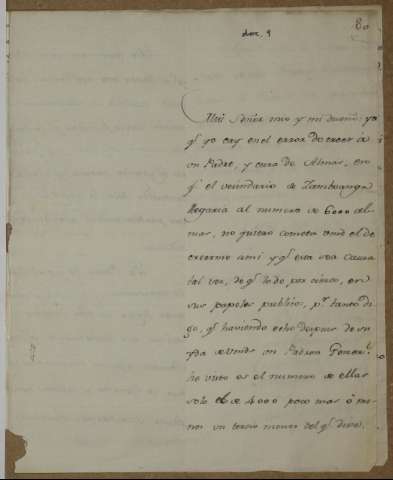 80
doc. 9
Mui Señor mio y mi dueño: ya
q.e yo cay en el error de creer a
un Padre, y cura de Almas, en
q.e el vecindario de Zamboanga
llegaria al numero de 6000 al-
mas, no quiero cometa vmd el de
creerme a mi y q.e esta sea causa
tal vez, de q.e lo de por cierto, en
sus papeles publicos, p.r tanto di-
go, q.e haviendo echo despues de su
yda de vmd un Padron General
he visto es el numero de ellas
solo de 4000 poco mas ó me-
nos un tercio menos del q.e dixe,